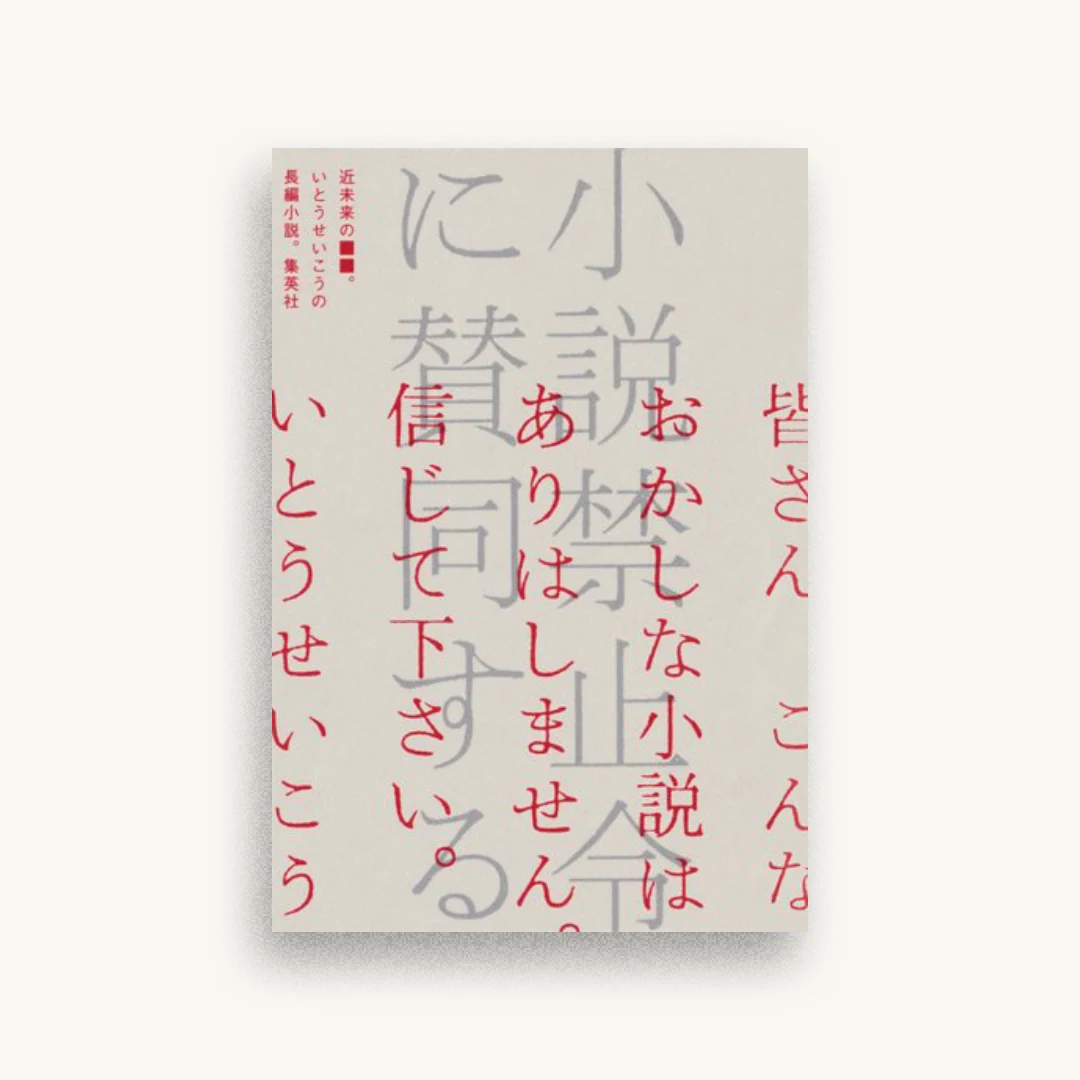 小説禁止令
に賛同する
皆さん こんな
おかしな小説は
ありはしません。
信じて下さい。
いとうせいこう
近未来の■■。
いとうせいこうの
長編小説。 集英社